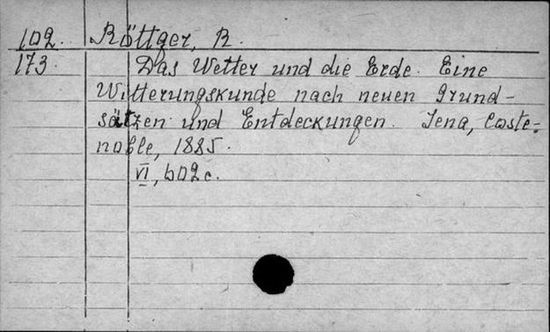 102. Röttger, R.
173. Das Wetter und die Erde. Eine
Witterungskunde nach neuen Grund-
sätzen und Entdeckungen. Jena, Coste-
noble, 1885.
VI, 602 c.